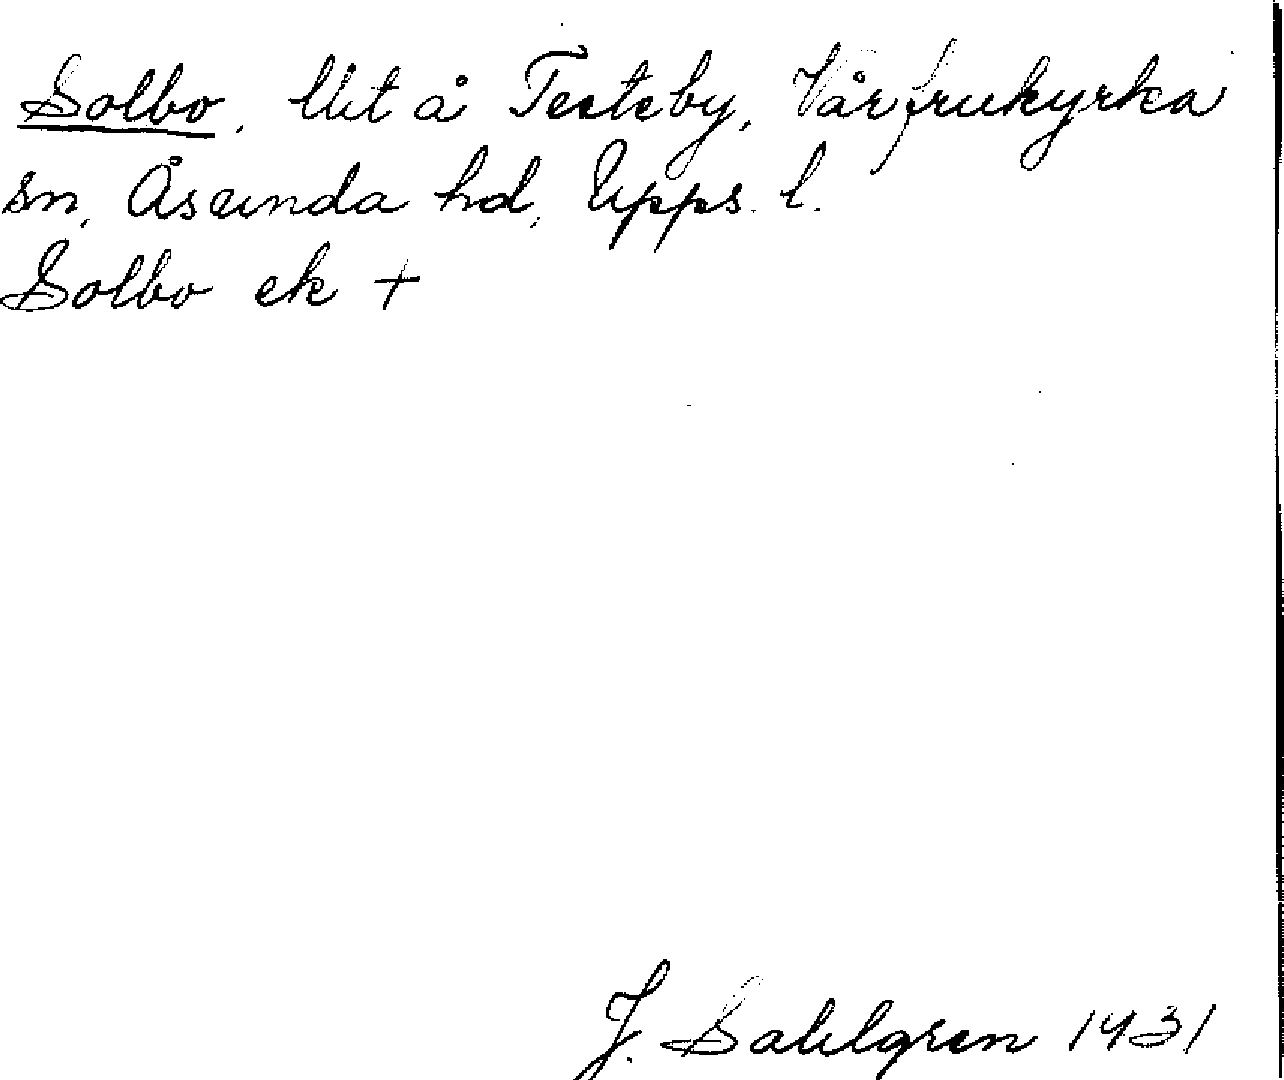 Solbo, Ut å Testeby, Vårfrukyrka
sn, Åsunda hd, Upps. l.
Solbo ek +
J. Sahlgren 1931